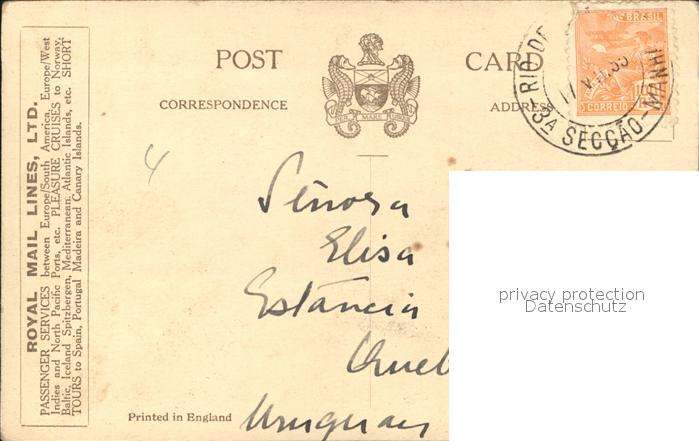 ROYAL MAIL LINES, LTD.
PASSENGER SERVICES between Europe/South America, Europe/West
Indies and North Pacific Ports, etc. PLEASURE CRUISES to Norway,
Baltic, Iceland Spitzbergen, Mediterranean, Atlantic Islands, etc. SHORT
TOURS to Spain, Portugal Madeira and Canary Islands.
POST CARD
CORRESPONDENCE
ADDRESS
PER MARE
BRASIL
CORREIO
RIO DE
3A SECÇÃO
4
Señora
Elisa
Estancia
Uruguay
Printed in England
privacy protection
Datenschutz